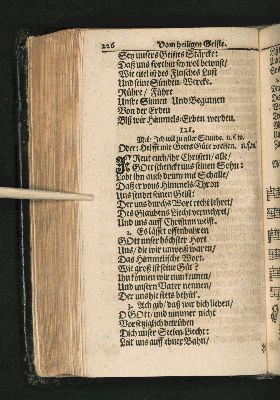 226 Vom heiligen Geiste.
Sey unsers Geistes Stärcke:
Daß uns forthin sey wol bewust/
Wie eitel ist des Fleisches Lust
Und seine Sünden-Wercke.
Rühre/ Führe
Unsre Sinnen Und Beginnen
Von der Erden
Biß wir Himmels-Erben werden.
121.
Mel: Ich ruff zu aller Stunde. u. s. w.
Oder: Helfft mir Gotts Güte preisen.
FReut euch/ ihr Christen/ alle/
GOtt schenckt uns seinen Sohn:
Lobt ihn auch drum mit Schalle/
Daß er vons Himmels-Thron
Uns sendet seinen Geist:
Der uns durchs Wort recht lehret/
Des Glaubens Liecht vermehret/
Und uns auff Christum weist.
2. Es lässet offenbahren
GOtt unser höchster Hort
Uns/ die wir unweiß waren/
Das Himmelische Wort.
Wie groß ist seine Güt?
Ihn können wir nun kennen/
Und unsern Vater nennen/
Der uns hie stets behüt.
3. Ach gib/ daß wir dich lieben/
O GOtt/ und nimmer nicht
Vorsetziglich betrüben
Dich unser Seelen Liecht:
Leit uns auff ebner Bahn/